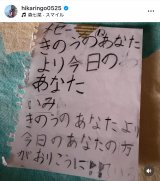 hikaringo0525
森七菜 · スマイル
メモー
きのうのあなた
より今日の
あなた
いみ
きのうのあなたより
今日のあなたの方
がおりこうに!!